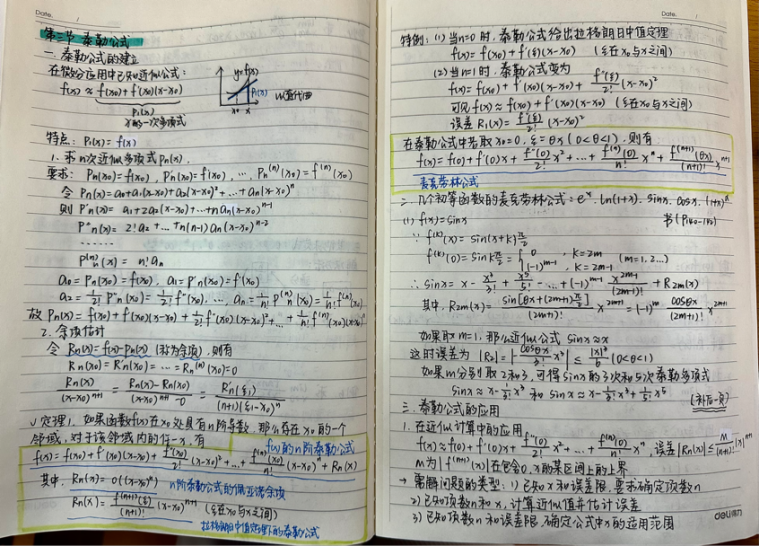 Date.
第三节 泰勒公式
一、泰勒公式的建立
在微分应用中已知近似公式：
f(x) ≈ f(x₀)+f'(x₀)(x-x₀)
P₁(x)
x的一次多项式
y=f(x)
P₁(x)
x₀ x
以直代曲
特点：P₁(x₀)= f(x₀)
1. 求n次近似多项式 Pn(x).
要求：Pn(x₀)=f(x₀), P'n(x₀)=f'(x₀), ..., Pn⁽ⁿ⁾(x₀)=f⁽ⁿ⁾(x₀)
令 Pn(x)=a₀+a₁(x-x₀)+a₂(x-x₀)²+...+an(x-x₀)ⁿ
则 P'n(x)= a₁+2a₂(x-x₀)+...+nan(x-x₀)ⁿ⁻¹
P''n(x)= 2!a₂+...+n(n-1)an(x-x₀)ⁿ⁻²
......
Pn⁽ⁿ⁾(x)= n!an
a₀=Pn(x₀)=f(x₀), a₁=P'n(x₀)=f'(x₀)
a₂=1/2! P''n(x₀)=1/2! f''(x₀), ..., an=1/n! Pn⁽ⁿ⁾(x₀)=1/n! f⁽ⁿ⁾(x₀)
故 Pn(x)=f(x₀)+f'(x₀)(x-x₀)+1/2! f''(x₀)(x-x₀)²+...+1/n! f⁽ⁿ⁾(x₀)(x-x₀)ⁿ
2. 余项估计
令 Rn(x)=f(x)-Pn(x) (称为余项), 则有
Rn(x₀)=R'n(x₀)=...=Rn⁽ⁿ⁾(x₀)=0
Rn(x)/(x-x₀)ⁿ⁺¹ = (Rn(x)-Rn(x₀))/((x-x₀)ⁿ⁺¹-0) = R'n(ξ₁)/((n+1)(ξ₁-x₀)ⁿ)
√ 定理1. 如果函数f(x)在x₀处具有n阶导数，那么存在x₀的一个
邻域，对于该邻域内的任一x，有
f(x)的n阶泰勒公式
f(x)=f(x₀)+f'(x₀)(x-x₀)+f''(x₀)/2! (x-x₀)²+...+f⁽ⁿ⁾(x₀)/n! (x-x₀)ⁿ+Rn(x)
其中，Rn(x)=o((x-x₀)ⁿ) n阶泰勒公式的佩亚诺余项
Rn(x)=f⁽ⁿ⁺¹⁾(ξ)/(n+1)! (x-x₀)ⁿ⁺¹ (ξ在x₀与x之间)
拉格朗日中值定理下的泰勒公式
Date.
特例：(1) 当n=0时，泰勒公式给出拉格朗日中值定理
f(x)=f(x₀)+f'(ξ)(x-x₀) (ξ在x₀与x之间)
(2) 当n=1时，泰勒公式变为
f(x)=f(x₀)+f'(x₀)(x-x₀)+f''(ξ)/2! (x-x₀)²
可见 f(x)≈f(x₀)+f'(x₀)(x-x₀) (ξ在x₀与x之间)
误差 R₁(x)=f''(ξ)/2! (x-x₀)²
在泰勒公式中若取x₀=0, ξ=θx (0<θ<1), 则有
f(x)=f(0)+f'(0)x+f''(0)/2! x²+...+f⁽ⁿ⁾(0)/n! xⁿ+f⁽ⁿ⁺¹⁾(θx)/(n+1)! xⁿ⁺¹
麦克劳林公式
二、几个初等函数的麦克劳林公式：eˣ. ln(1+x). sinx. cosx. (1+x)ᵅ
(1) f(x)=sinx 书(P140-142)
∵ f⁽ᵏ⁾(x)=sin(x+k π/2)
f⁽ᵏ⁾(0)=sin k π/2 = { 0 , k=2m
(-1)ᵐ⁻¹, k=2m-1 (m=1,2...)
∴ sinx= x- x³/3! + x⁵/5! -...+(-1)ᵐ⁻¹ x²ᵐ⁻¹/(2m-1)! + R2m(x)
其中，R2m(x)= sin[θx+(2m+1)π/2]/(2m+1)! x²ᵐ⁺¹=(-1)ᵐ cosθx/(2m+1)! x²ᵐ⁺¹
如果取m=1, 那么近似公式 sinx≈x
这时误差为 |R₂|=|-cosθx/3! x³| ≤ |x|³/6 (0<θ<1)
如果m分别取2和3, 可得sinx的3次和5次泰勒多项式
sinx≈x-1/3!x³ 和 sinx≈x-1/3!x³+1/5!x⁵ (补后一页)
三、泰勒公式的应用
1. 在近似计算中的应用
f(x)≈f(0)+f'(0)x+f''(0)/2! x²+...+f⁽ⁿ⁾(0)/n! xⁿ, 误差|Rn(x)|≤M/(n+1)! |x|ⁿ⁺¹
M为|f⁽ⁿ⁺¹⁾(x)|在包含0,x的某区间上的上界
→ 需解问题的类型：1) 已知x和误差限，要求确定项数n
2) 已知项数n和x, 计算近似值并估计误差
3) 已知项数n和误差限，确定公式中x的适用范围
deli得力